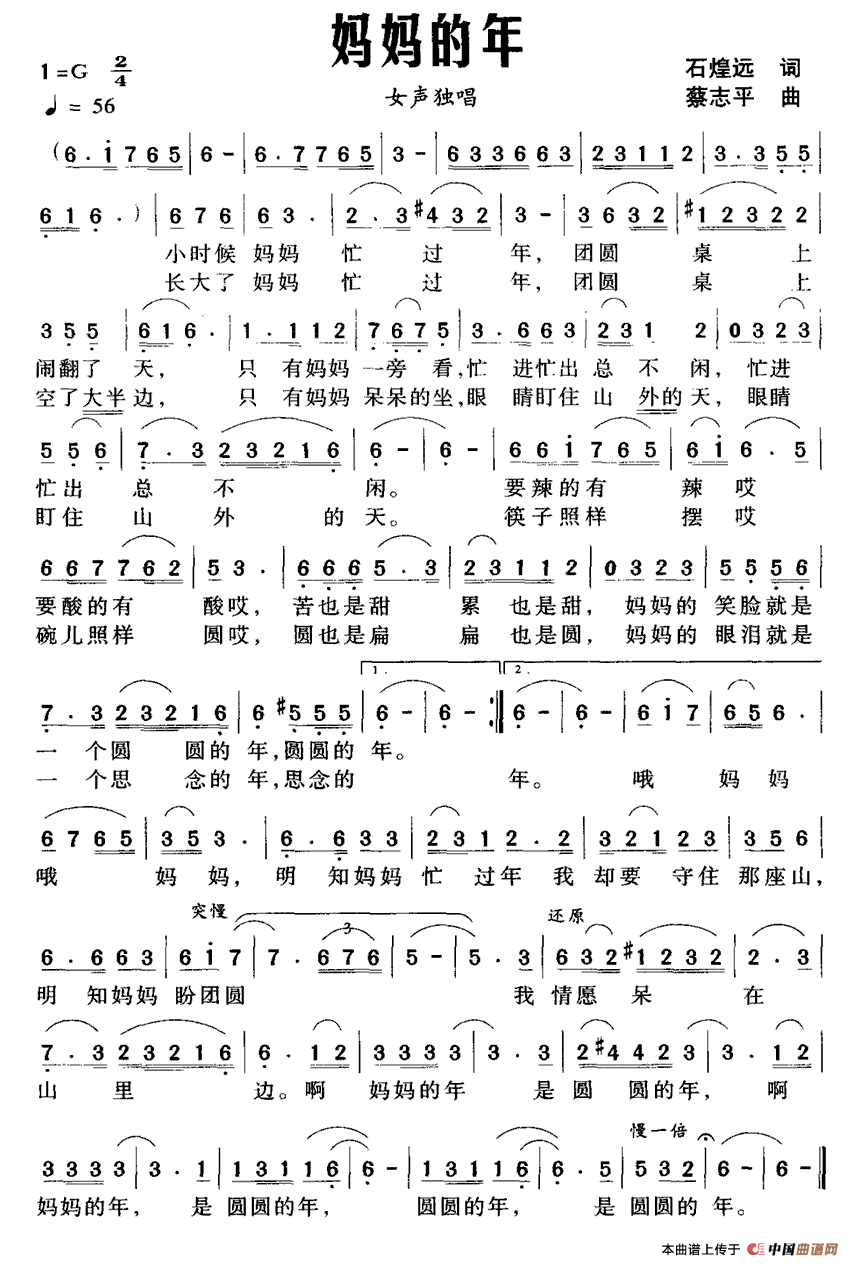 妈妈的年
1=G 2/4
♩= 56
女声独唱
石煌远 词
蔡志平 曲
(6·i765 | 6 - | 6·7765 | 3 - | 633663 | 23112 | 3·355 |
616·) | 676 | 63· | 2·3#432 | 3 - | 3632 | #12322 |
小时候 妈妈 忙 过 年, 团圆 桌 上
长大了 妈妈 忙 过 年, 团圆 桌 上
355 | 616· | 1·112 | 7675 | 3·663 | 231 2 | 0323 |
闹翻了 天, 只 有妈妈 一旁 看,忙 进忙出 总 不 闲, 忙进
空了大半边, 只 有妈妈 呆呆的坐,眼 睛盯住 山 外的天, 眼睛
556 | 7·323216 | 6 - | 6 - | 66i765 | 6i6·5 |
忙出 总 不 闲。 要辣的有 辣 哎
盯住 山 外 的 天。 筷子照样 摆 哎
667762 | 53· | 6665·3 | 23112 | 0323 | 5556 |
要酸的有 酸哎, 苦也是甜 累 也是甜, 妈妈的 笑脸就是
碗儿照样 圆哎, 圆也是扁 扁 也是圆, 妈妈的 眼泪就是
1. 2.
7·323216 | 6#555 | 6 - | 6 - :| 6 - | 6 - | 6i7 | 656· |
一 个圆 圆的 年,圆圆的 年。
一 个思 念的 年,思念的 年。 哦 妈 妈
6765 | 353· | 6·633 | 2312·2 | 32123 | 356 |
哦 妈 妈, 明 知妈妈 忙 过年 我 却要 守住 那座山,
突慢 还原
6·663 | 6i7 | 7·676 | 5 - | 5·3 | 632#1232 | 2·3 |
3
明 知妈妈 盼团圆 我 情愿 呆 在
7·323216 | 6·12 | 3333 | 3·3 | 2#44233·12 |
山 里 边。啊 妈妈的年 是 圆 圆的年, 啊
慢一倍
3333 | 3·1 | 13116 | 6 - | 13116 | 6·5 | 532 | 6 - | 6 - ‖
妈妈的年, 是 圆圆的年, 圆圆的年, 是 圆圆的 年。
本曲谱上传于 中国曲谱网